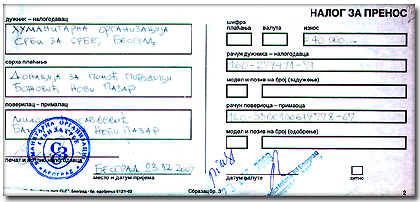 НАЛОГ ЗА ПРЕНОС
дужник – налогодавац
ХУМАНИТАРНА ОРГАНИЗАЦИЈА
СРБИ ЗА СРБЕ, БЕОГРАД
сврха плаћања
ДОНАЦИЈА ЗА ПОМОЋ ПОРОДИЦИ
БОЖОВИЋ НОВИ ПАЗАР
поверилац – прималац
НОВИ ПАЗАР
печат и потпис налогодавца
БЕОГРАД 23.12.2007
место и датум пријема
Образац бр. 3
шифра
плаћања
валута
износ
рачун дужника – налогодавца
160-279791-71
модел и позив на број (задужење)
рачун повериоца – примаоца
160-5300100617778-67
модел и позив на број (одобрење)
датум валуте
хитно
2
ХУМАНИТАРНА ОРГАНИЗАЦИЈА
СРБИ ЗА СРБЕ
БЕОГРАД